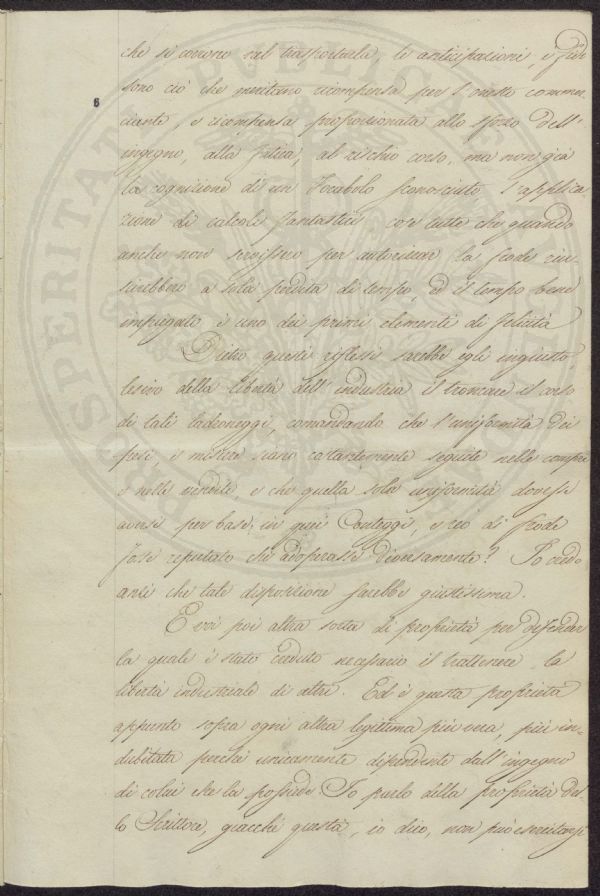 6
che si corrono nel trasportarla, le anticipazioni,
sono ciò che meritano ricompensa per l'onesto commer
ciante, e ricompensa proporzionata allo sforzo dell'
ingegno, alla fatica, al rischio corso, ma non già
la cognizione di un Vocabolo sconosciuto l'applica
zione di calcoli fantastici cose tutte che quando
anche non servissero per autorizzar la frode riu
scirebbero a sola perdita di tempo, ed il tempo bene
impiegato è uno dei primi elementi di felicità
Dietro questi riflessi sarebbe egli ingiusto,
lesivo della libertà dell'industria il troncare il corso
di tali ladroneggi, comandando che l'uniformità dei
pesi, e misure siano costantemente seguite nelle compre
e nelle vendite, e che quella sola uniformità dovesse
aversi per base in quei Conteggi, e reo di frode
fosse reputato chi adoperasse diversamente? Io credo
anzi che tale disposizione sarebbe giustissima.
E vvi poi altra sorta di proprietà per difender
la quale è stato creduto necessario il trattenere la
libertà industriale di altri. Ed è questa proprietà
appunto sopra ogni altra legittima più vera, più in-
dubitata perché unicamente dipendente dall'ingegno
di colui che la possiede. Io parlo della proprietà del-
lo Scrittore, giacchè questa, io dico, non può esercitarsi
PROSPERITATI PVBLICAE